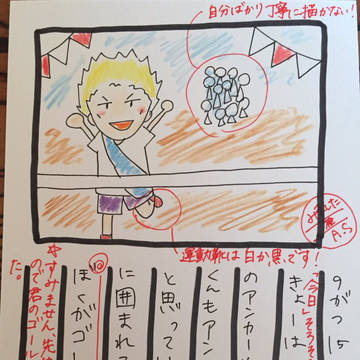 自分ばかり丁寧に描かない！
運動靴は白か黒です！
みました
A.S
9がつ15
「今日」そろそ
きょーは
のアンカーや
くんもアン
と思ってい
に囲まれて
ぼくがゴー
ね
すみません、先
ので君のゴール
た。